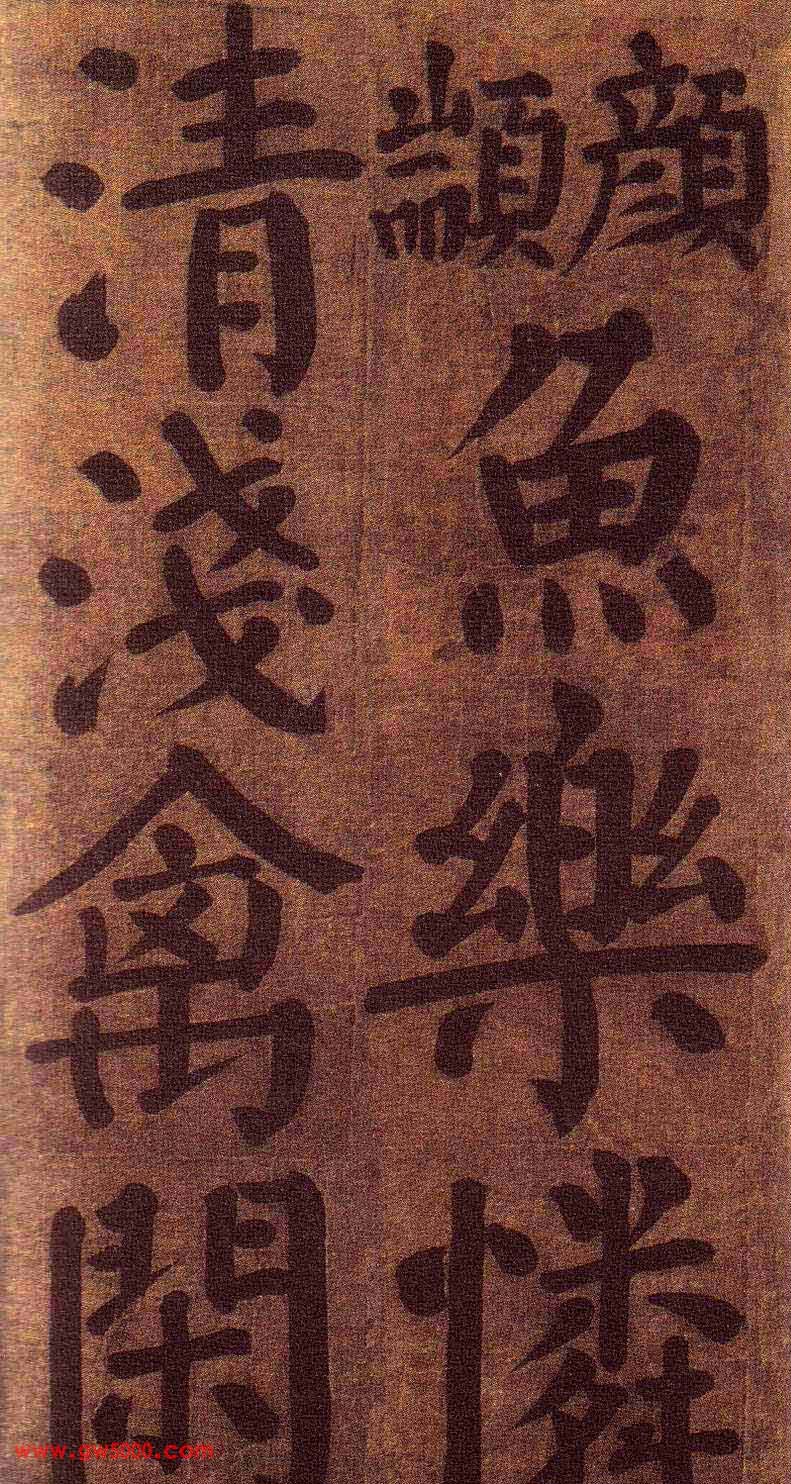 顔顓魚樂憐
清淺禽閑
www.qw5000.com